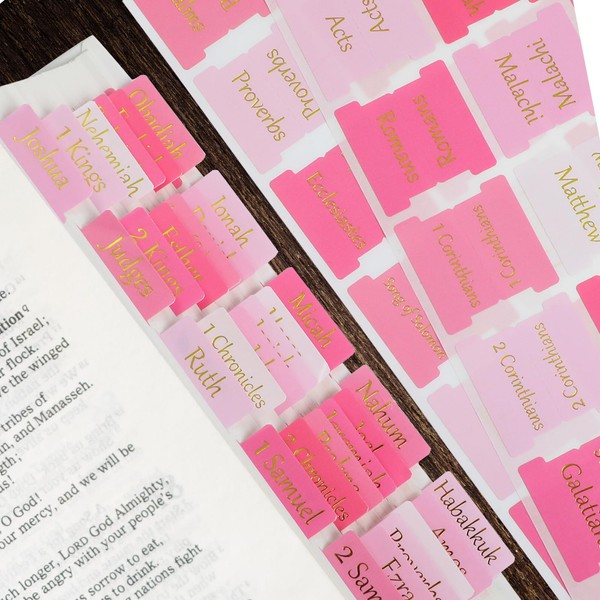 Obadiah
Nehemiah
1 Kings
Joshua
Jonah
Esther
2 Kings
Judges
Micah
1 Chronicles
Ruth
Nahum
Joel
Jeremiah
2 Chronicles
1 Samuel
Habakkuk
Amos
Proverbs
Ezra
2 Sam
Acts
Acts
Proverbs
Proverbs
Malachi
Malachi
Romans
Romans
Ecclesiastes
Matthew
1 Corinthians
1 Corinthians
Song of Solomon
2 Corinthians
2 Corinthians
Galatian
ation
of Israel;
r flock.
e the winged
tribes of
n, and Manasseh.
gth;
us!
O God!
our mercy, and we will
ch longer, LORD God Almighty,
be angry with your people's
s sorrow to eat,
rs to drink.
nations fight